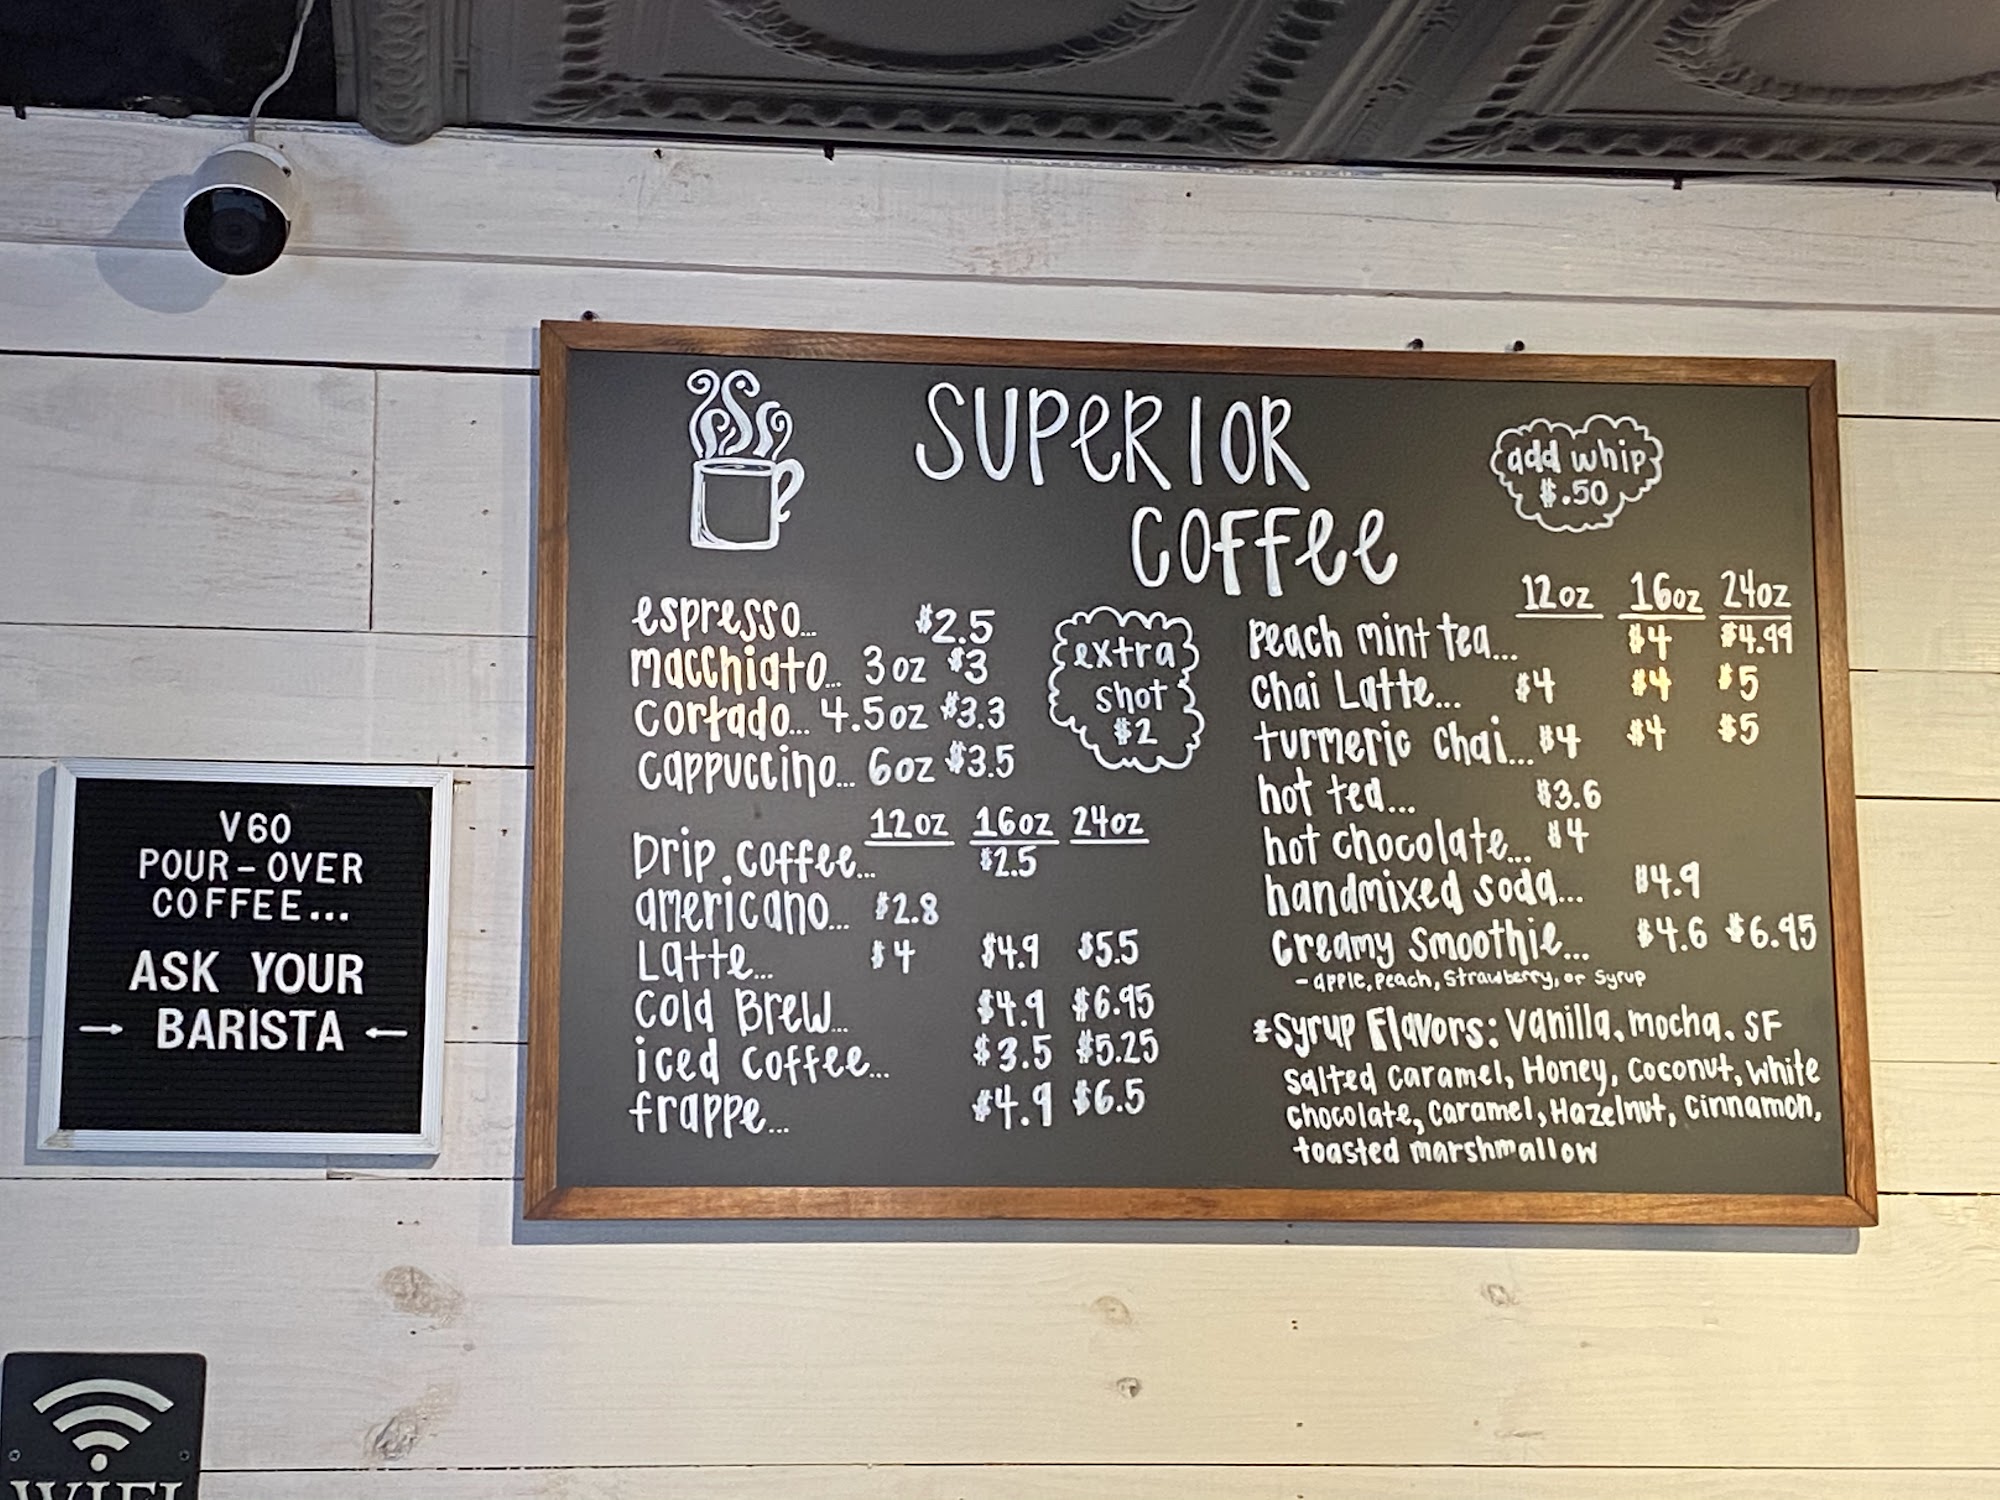 SUPERIOR
COFFEE
add whip
$.50
espresso... $2.5
macchiato... 3oz $3
cortado... 4.5oz $3.3
cappuccino... 6oz $3.5
extra
shot
$2
12oz 16oz 24oz
Drip coffee... $2.5
americano... $2.8
Latte... $4 $4.9 $5.5
Cold Brew... $4.9 $6.95
iced coffee... $3.5 $5.25
frappe... $4.9 $6.5
12oz 16oz 24oz
Peach mint tea... $4 $4.99
Chai Latte... $4 $4 $5
turmeric chai... $4 $4 $5
hot tea... $3.6
hot chocolate... $4
handmixed soda... $4.9
Creamy Smoothie... $4.6 $6.95
- apple, peach, strawberry, or syrup
*Syrup Flavors: Vanilla, mocha, SF
salted caramel, Honey, Coconut, white
chocolate, Caramel, Hazelnut, cinnamon,
toasted marshmallow
V60
POUR-OVER
COFFEE...
ASK YOUR
→ BARISTA ←
WIFI